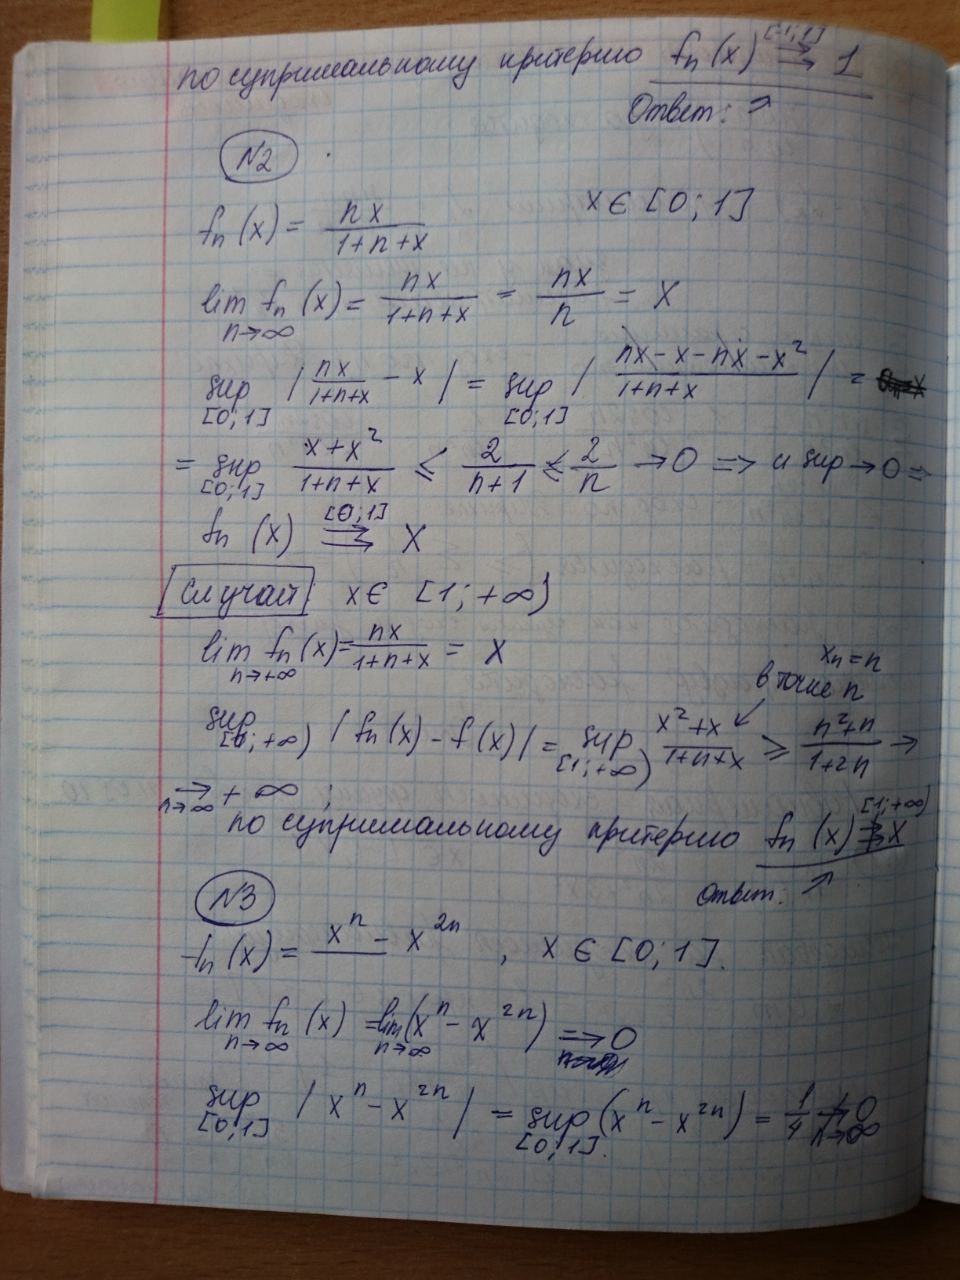 по супримальному критерию fₙ(x) ⇉ 1 [-1;1]
Ответ: ↗
N2
fₙ(x) = nx/(1+n+x) x ∈ [0;1]
lim n→∞ fₙ(x) = nx/(1+n+x) = nx/n = x
sup [0;1] | nx/(1+n+x) - x | = sup [0;1] | (nx-x-nx-x²)/(1+n+x) | =
= sup [0;1] (x+x²)/(1+n+x) ≤ 2/(n+1) ≤ 2/n → 0 ⇒ и sup → 0 ⇒
fₙ(x) ⇉ x [0;1]
Случай x ∈ [1;+∞)
lim n→+∞ fₙ(x) = nx/(1+n+x) = x
xₙ = n
в точке n
sup [0;+∞) | fₙ(x) - f(x) | = sup [1;+∞) (x²+x)/(1+n+x) ≥ (n²+n)/(1+2n) →
→ n→∞ +∞ ;
по супримальному критерию fₙ(x) ⇉̸ x [1;+∞)
ответ: ↗
N3
fₙ(x) = xⁿ - x²ⁿ , x ∈ [0;1].
lim n→∞ fₙ(x) = lim n→∞ (xⁿ - x²ⁿ) ⇒ 0
sup [0;1] | xⁿ - x²ⁿ | = sup [0;1] (xⁿ - x²ⁿ) = 1/4 ↛ 0 n→∞